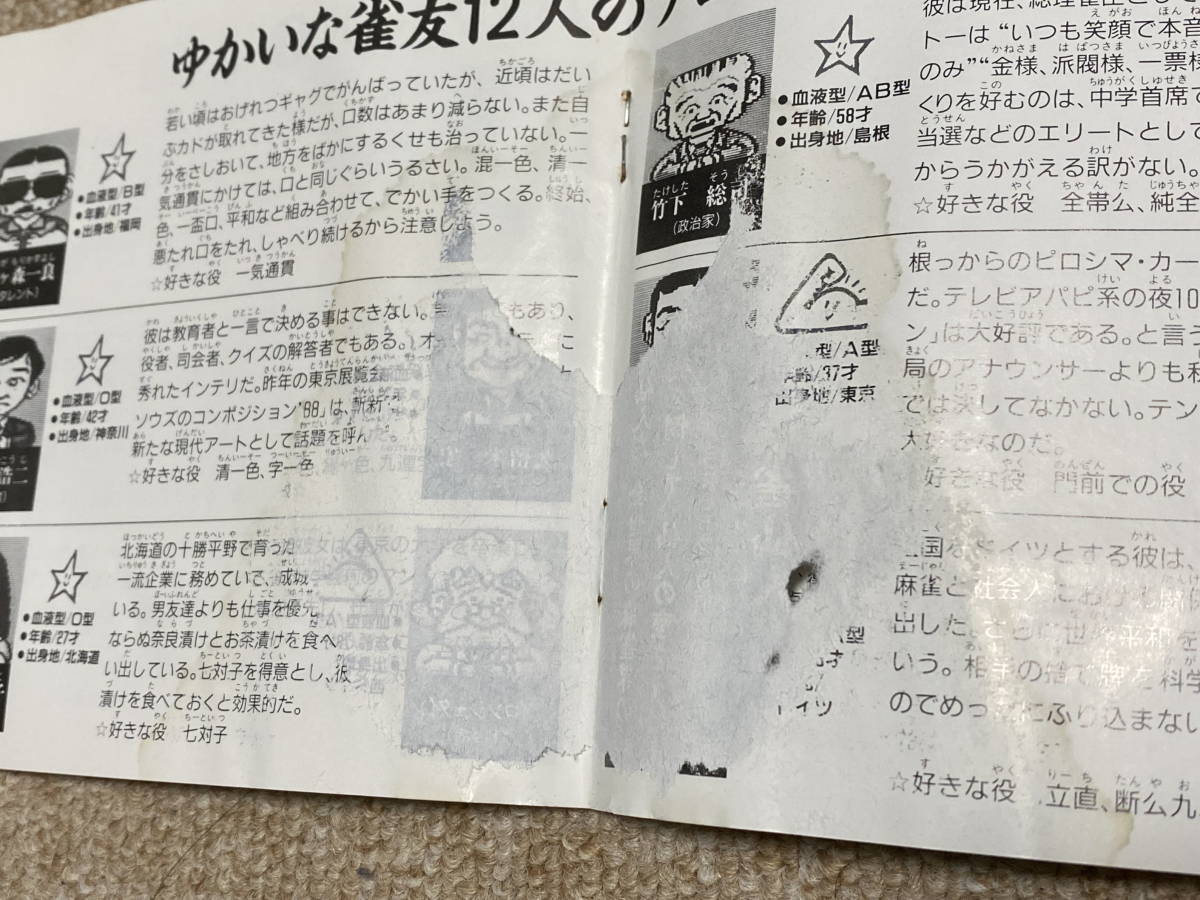 ゆかいな雀友12人の
若い頃はおげれつギャグでがんばっていたが、近頃はだい
ぶカドが取れてきた様だが、口数はあまり減らない。また自
分をさしおいて、地方をばかにするくせも治っていない。一
気通貫にかけては、口と同じぐらいうるさい。混一色、清一
色、一盃口、平和など組み合わせて、でかい手をつくる。終始、
悪たれ口をたれ、しゃべり続けるから注意しよう。
☆好きな役 一気通貫
●血液型/B型
●年齢/41才
●出身地/福岡
森一良
タレント)
彼は教育者と一言で決める事はできない。
もあり、
役者、司会者、クイズの解答者でもある。
に
秀れたインテリだ。昨年の東京展覧会
ソウズのコンポジション'88」は、斬新
新たな現代アートとして話題を呼んだ。
☆好きな役 清一色、字一色、緑一色、九連
●血液型/O型
●年齢/42才
●出身地/神奈川
北海道の十勝平野で育った
一流企業に務めていて、成城
いる。男友達よりも仕事を優先
ならぬ奈良漬けとお茶漬けを食べ
い出している。七対子を得意とし、彼
漬けを食べておくと効果的だ。
☆好きな役 七対子
●血液型/O型
●年齢/27才
●出身地/北海道
竹下 総
(政治家)
●血液型/AB型
●年齢/58才
●出身地/島根
彼は現在、総理
トーは“いつも笑顔で本音
のみ”“金様、派閥様、一票様
くりを好むのは、中学首席で
当選などのエリートとして
からうかがえる訳がない。
☆好きな役 全帯公、純全
型/A型
年齢/37才
出身地/東京
根っからのピロシマ・カー
だ。テレビアパピ系の夜10
ン」は大好評である。と言っ
局のアナウンサーよりも
では決してなかない。テン
大好きなのだ。
好きな役 門前での役
型
才
ドイツ
国をドイツとする彼は、
麻雀と社会人における
出した。さらに世界平和を
いう。相手の捨て牌を科学
のでめったにふり込まない
☆好きな役 立直、断公九